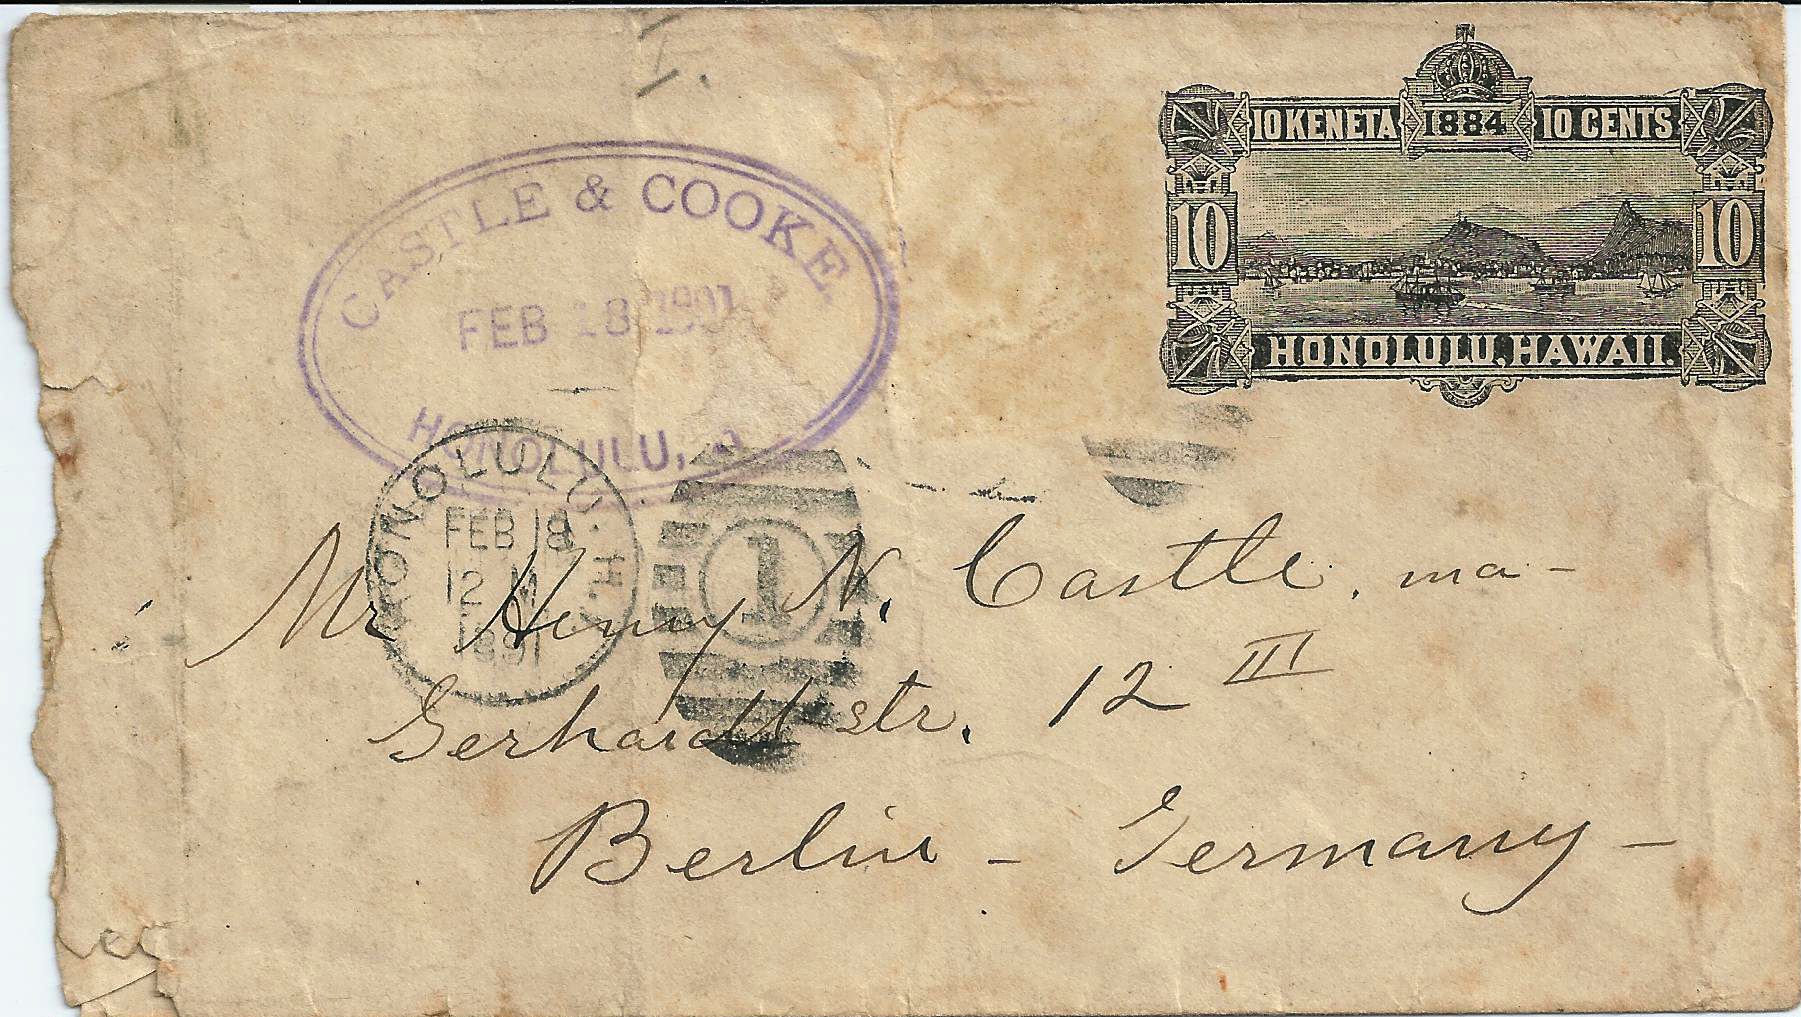 I.
10 KENETA 1884 10 CENTS
10 10
HONOLULU, HAWAII.
CASTLE & COOKE
FEB 18 1891
HONOLULU,
HONOLULU. H.I.
FEB 18
12 M
1891
1
Mr Henry N. Castle. ma-
Gerhardtstr. 12 III
Berlin - Germany -